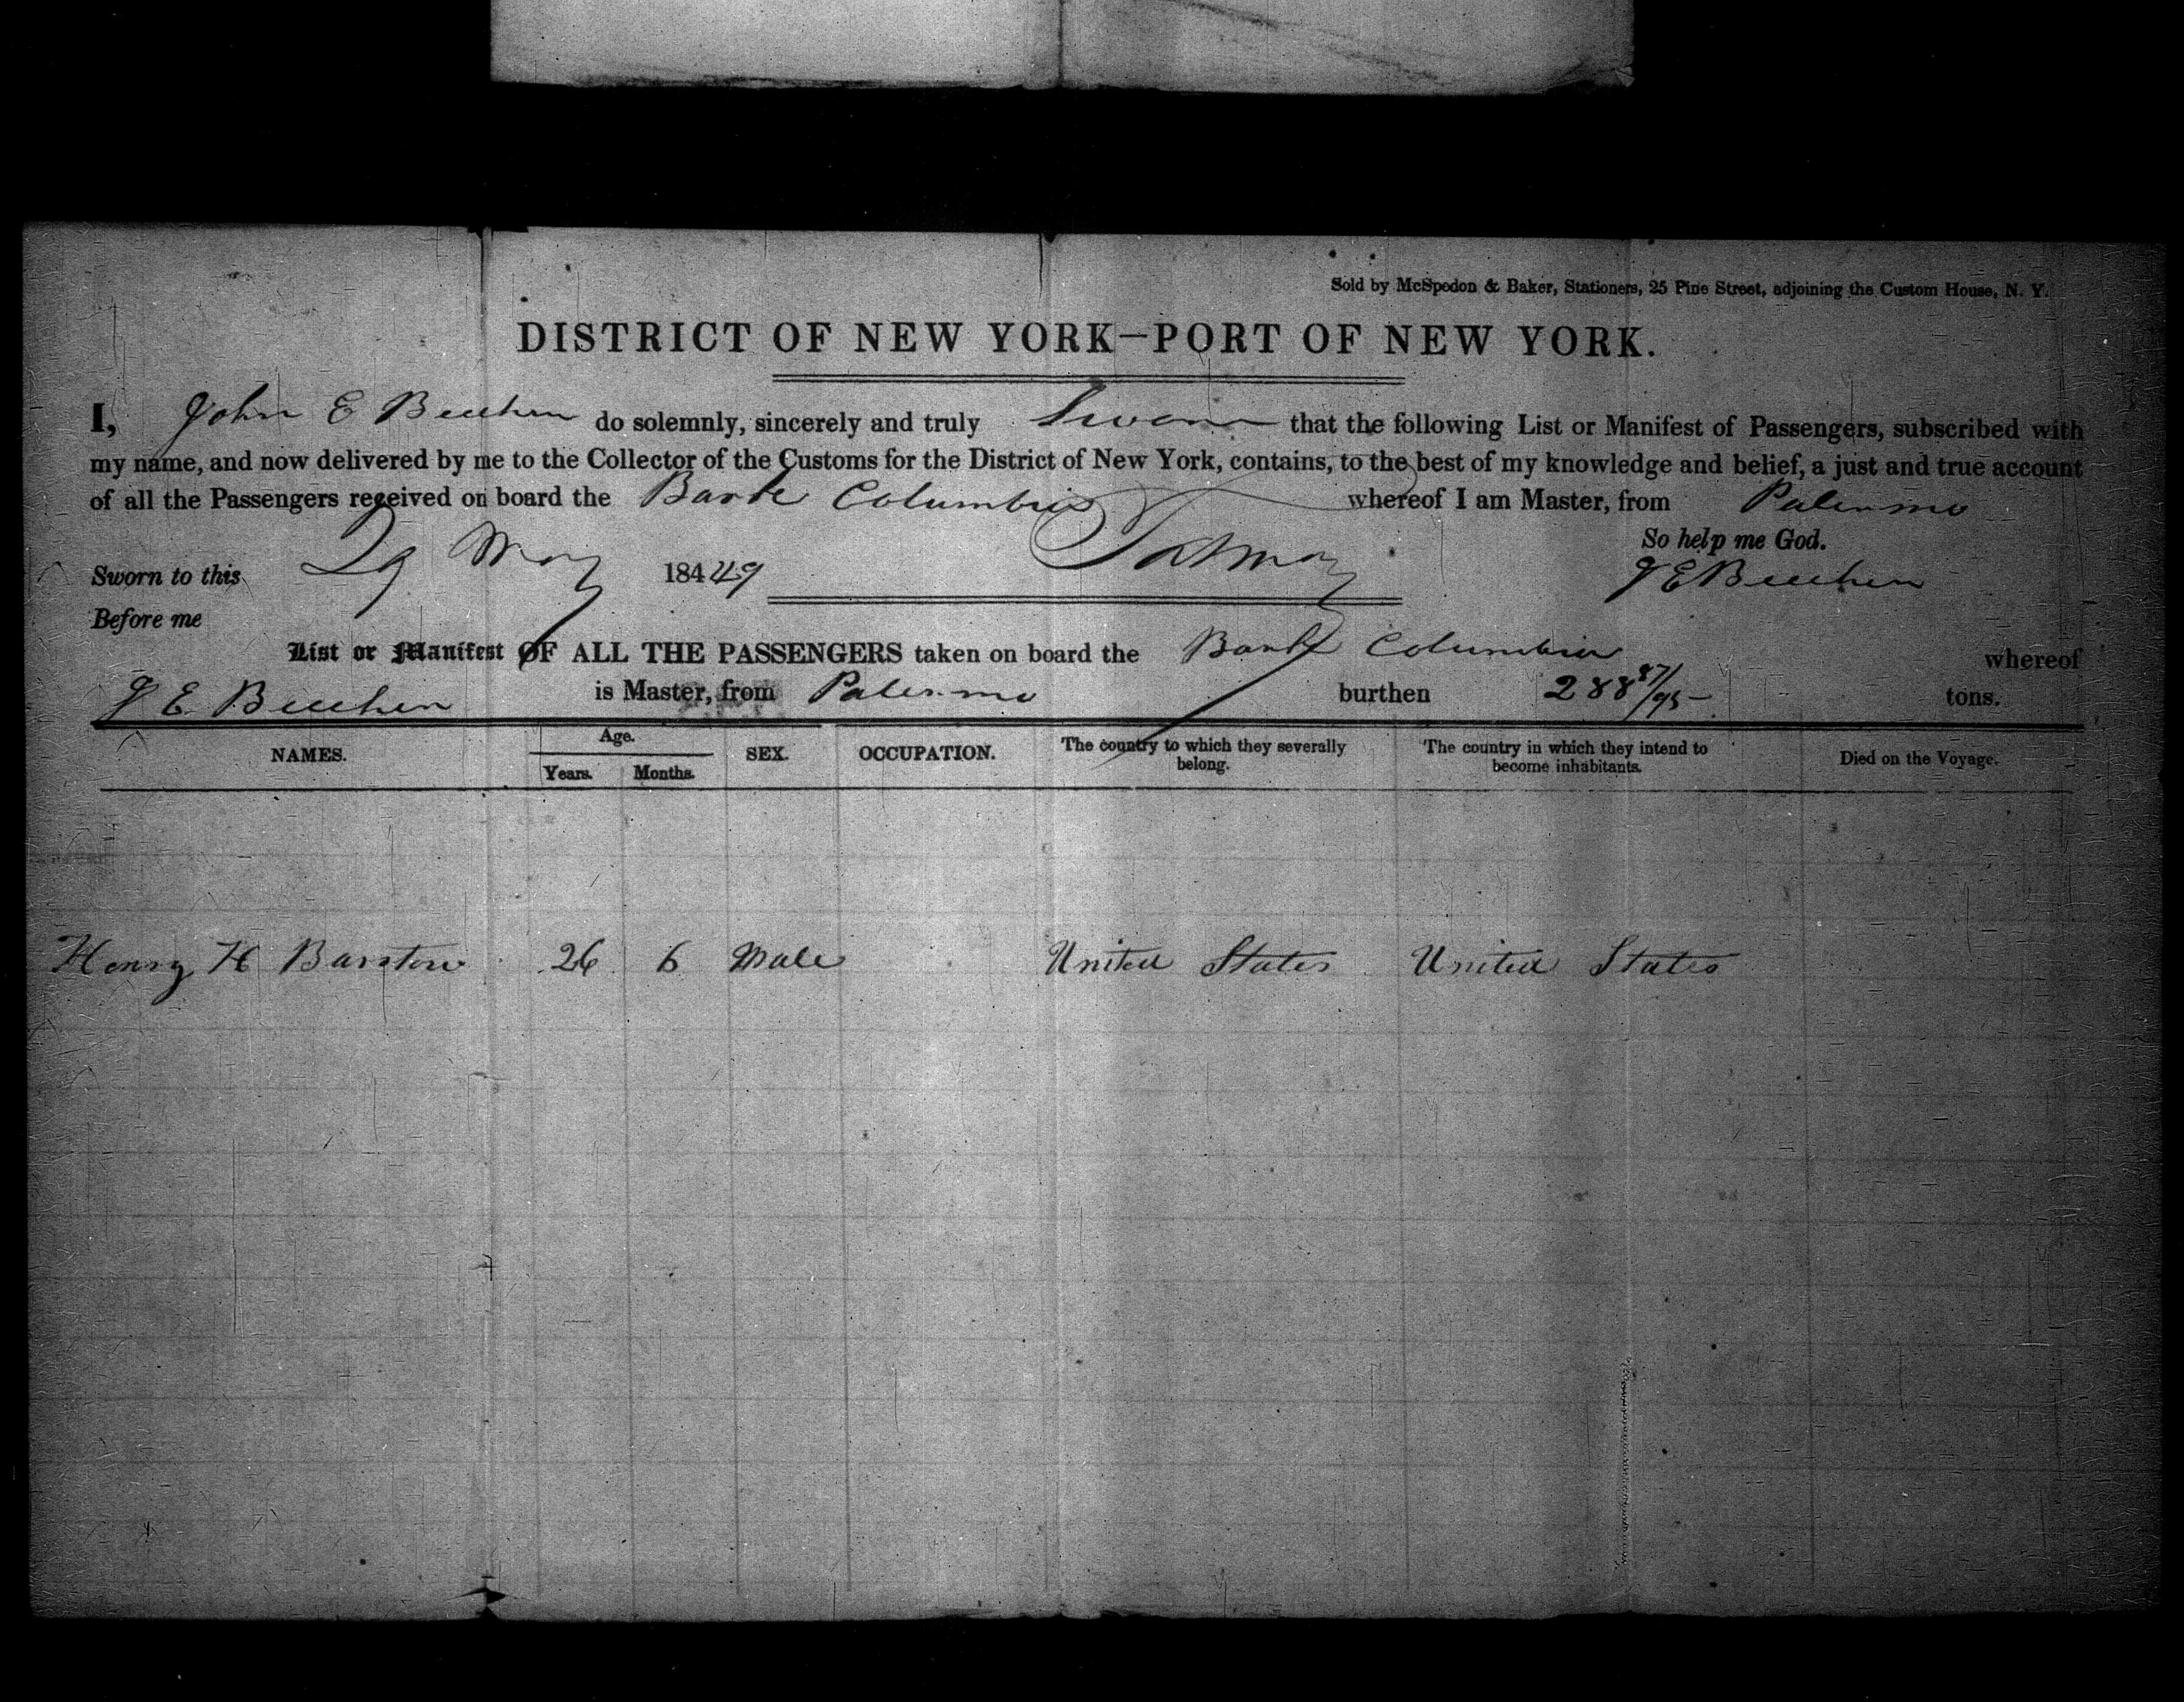 Sold by McSpedon & Baker, Stationers, 25 Pine Street, adjoining the Custom House, N. Y.
DISTRICT OF NEW YORK—PORT OF NEW YORK.
I, John E do solemnly, sincerely and truly Swear that the following List or Manifest of Passengers, subscribed with
my name, and now delivered by me to the Collector of the Customs for the District of New York, contains, to the best of my knowledge and belief, a just and true account
of all the Passengers received on board the Bark Columbia whereof I am Master, from Palermo
So help me God.
Sworn to this 29 May 184 49 J E
Before me
List or Manifest OF ALL THE PASSENGERS taken on board the Bark Columbia whereof
J E is Master, from Palermo burthen 288 87/95 tons.
NAMES. Age. Years. Months. SEX. OCCUPATION. The country to which they severally belong. The country in which they intend to become inhabitants. Died on the Voyage.
Henry H Barstow 26 6 Male United States United States